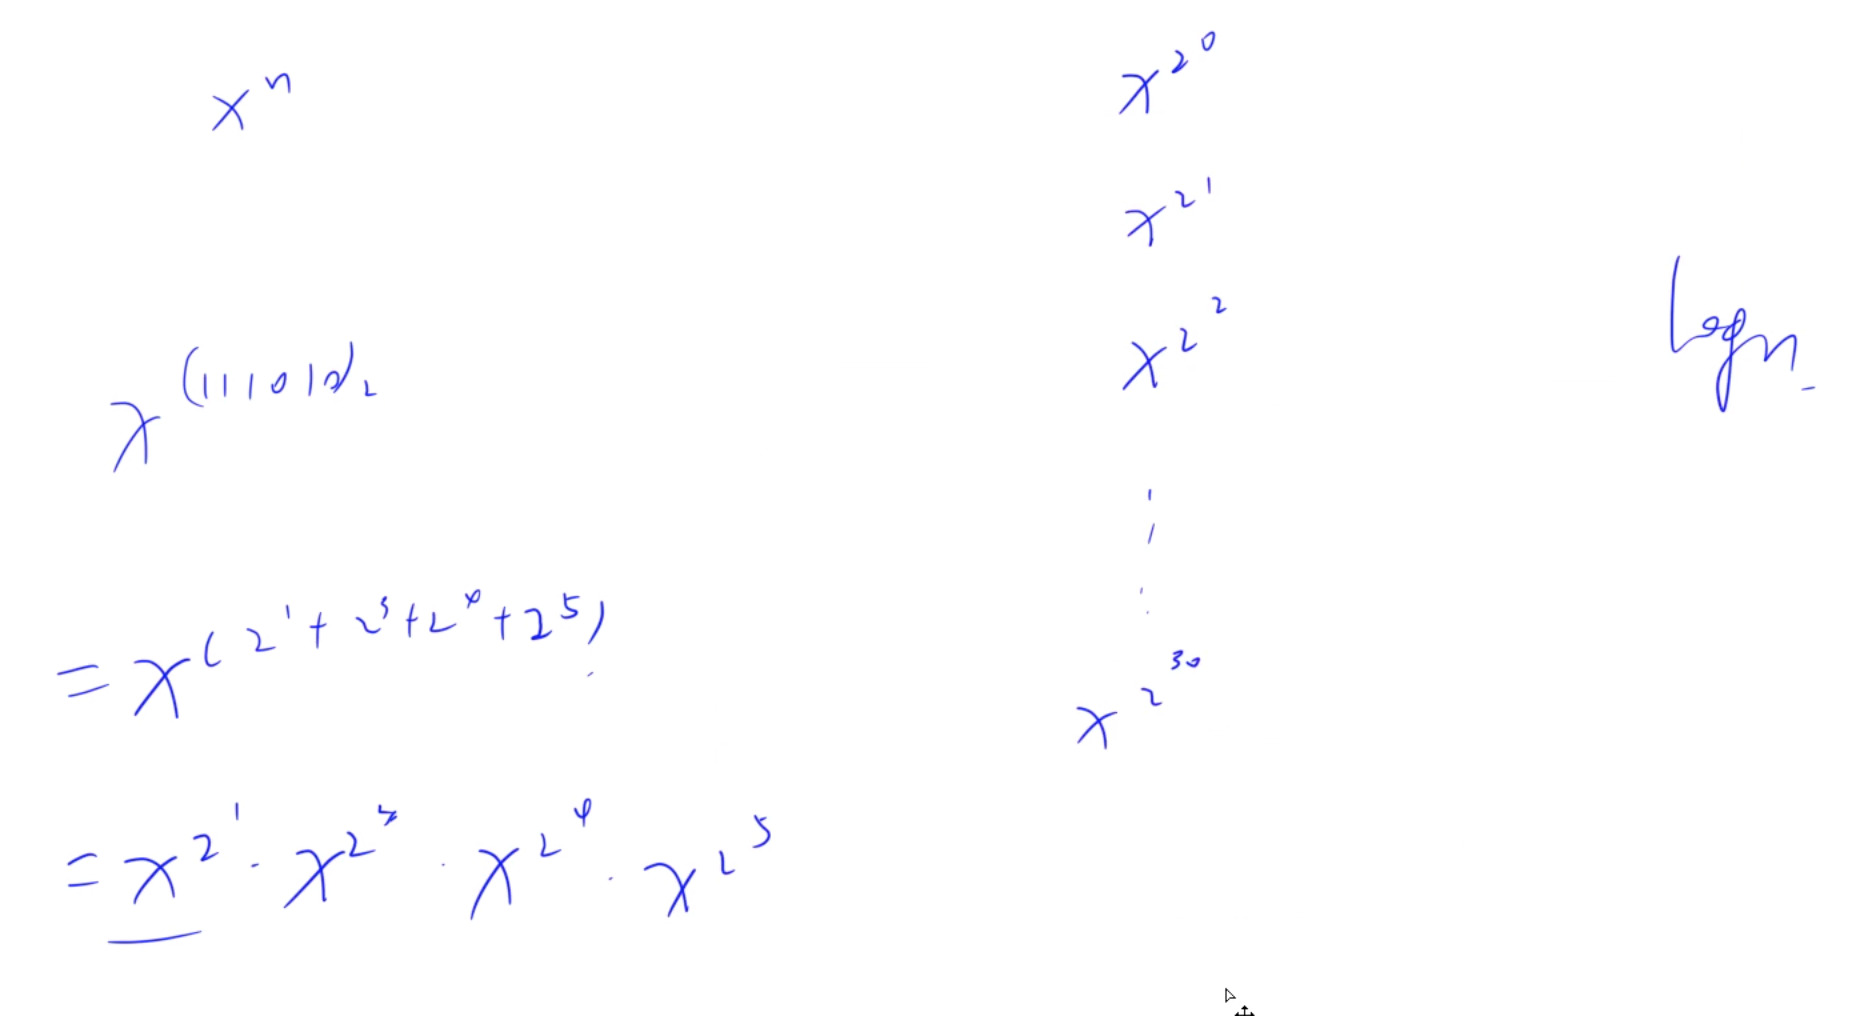 xⁿ
x^(111010)₂
= x^(2¹ + 2³ + 2⁴ + 2⁵)
= x^2¹ · x^2³ · x^2⁴ · x^2⁵
x^2⁰
x^2¹
x^2²
⋮
x^2³⁰
logn